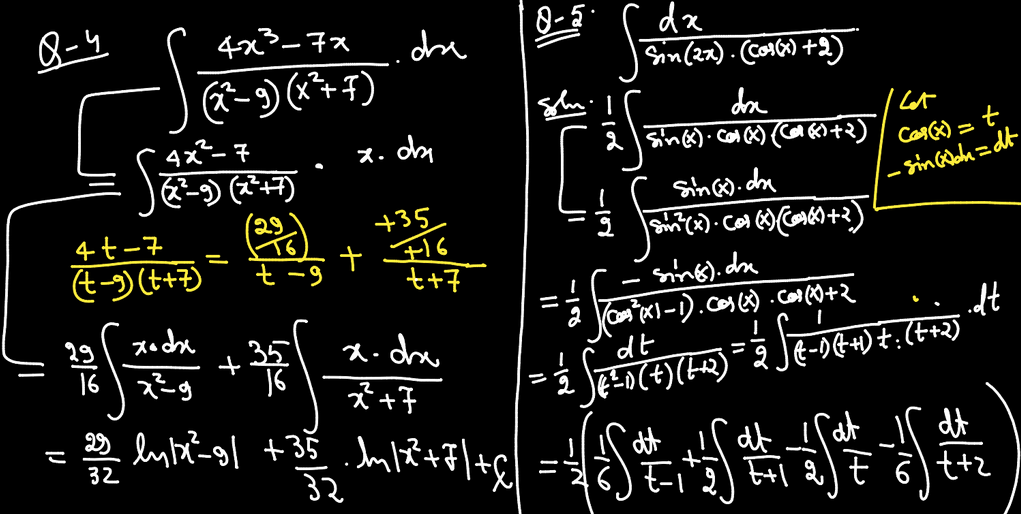 Q-4 ∫ (4x³ - 7x)/((x² - 9)(x² + 7)) . dx
= ∫ (4x² - 7)/((x² - 9)(x² + 7)) . x. dx
(4t - 7)/((t - 9)(t + 7)) = (29/16)/(t - 9) + (+35/+16)/(t + 7)
= 29/16 ∫ x.dx/(x² - 9) + 35/16 ∫ x. dx/(x² + 7)
= 29/32 ln|x² - 9| + 35/32 . ln|x² + 7| + C
Q-5. ∫ dx/(sin(2x) . (cos(x) + 2))
Soln. 1/2 ∫ dx/(sin(x) . cos(x) (cos(x) + 2))
Let
cos(x) = t
- sin(x)dx = dt
= 1/2 ∫ sin(x). dx/(sin²(x). cos(x) (cos(x) + 2))
= 1/2 ∫ - sin(x). dx/((cos²(x) - 1). cos(x) . cos(x) + 2
= 1/2 ∫ dt/((t² - 1)(t)(t + 2)) = 1/2 ∫ 1/((t - 1)(t + 1) t. (t + 2)) . dt
= 1/2 (1/6 ∫ dt/(t - 1) + 1/2 ∫ dt/(t + 1) - 1/2 ∫ dt/t - 1/6 ∫ dt/(t + 2))